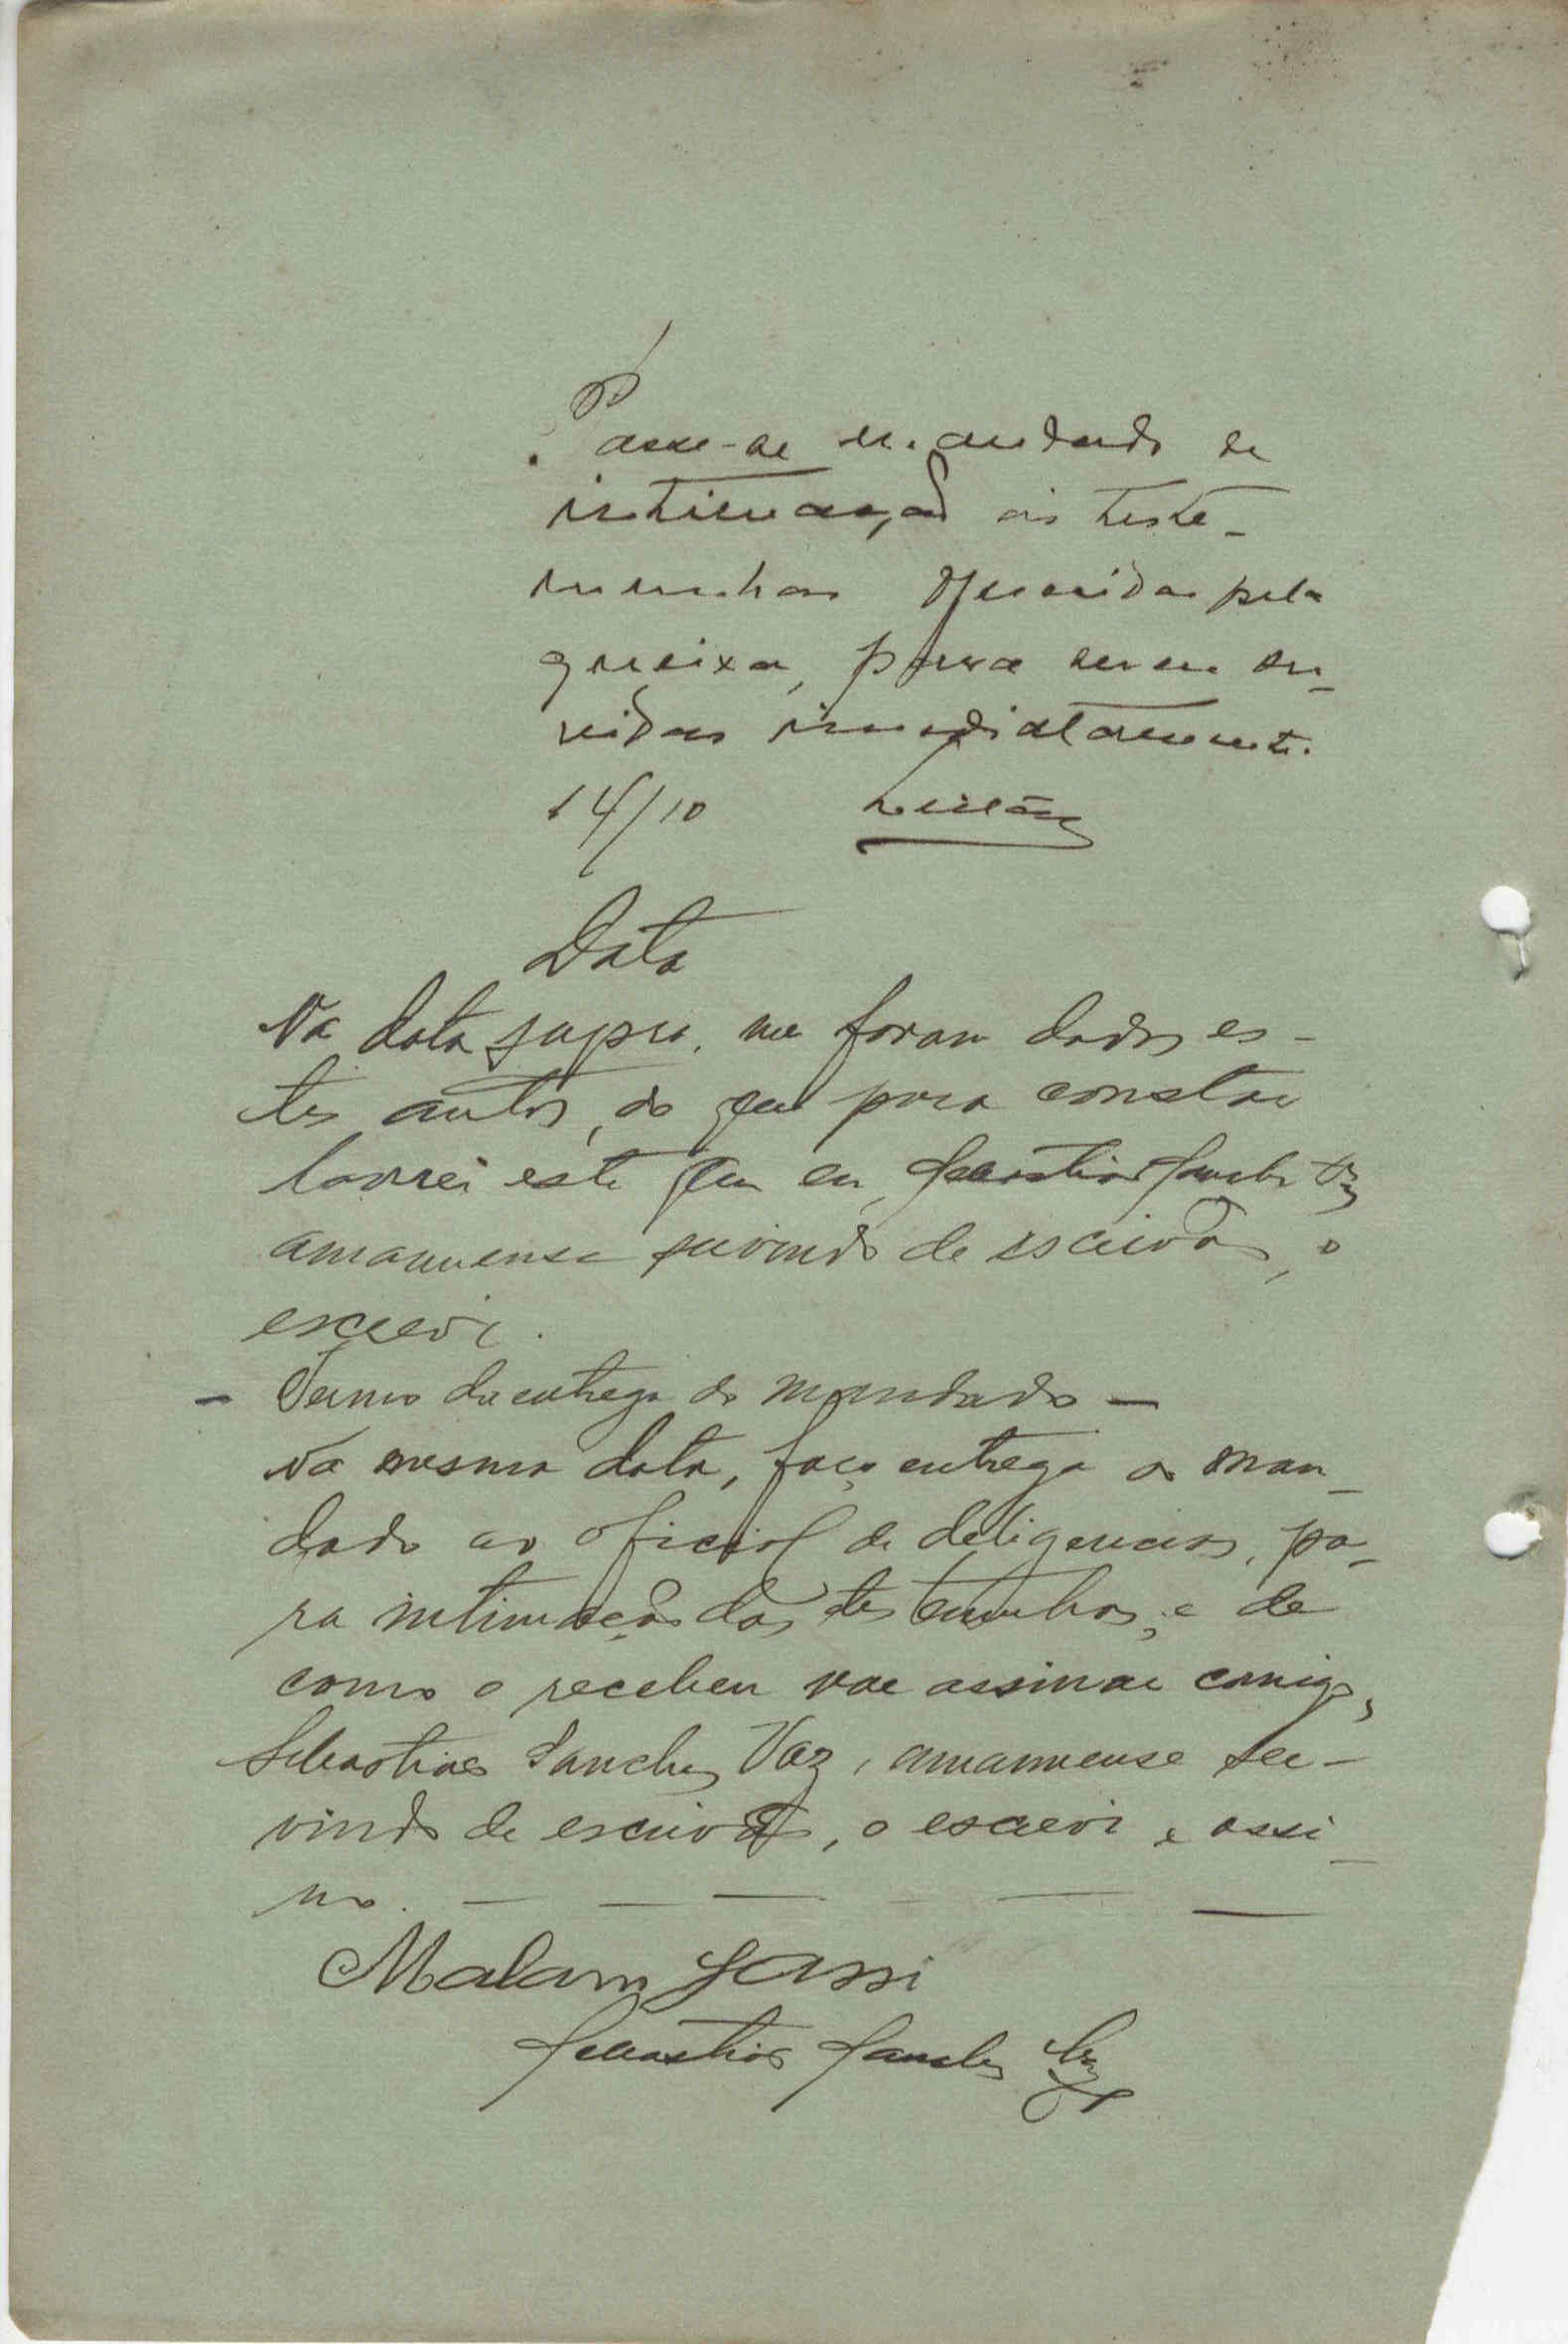 Passe-se mandado de
intimação ás teste-
munhas oferecidas pela
queixa, para serem ou-
vidas imediatamente.
14/10
Data
Na data supra, me foram dados es-
tes autos, do que para constar
lavrei este que eu, Sebastião Sanches Vaz
amanuense servindo de escrivão, o
escrevi.
- Termo de entrega do mandado -
Na mesma data, faço entrega do man-
dado ao oficial de deligencias, pa-
ra intimação das testemunhas, e de
como o recebeu vae assinar comigo,
Sebastião Sanches Vaz, amanuense ser-
vindo de escrivão, o escrevi e assi-
no.
Malam Sassi
Sebastião Sanches Vaz